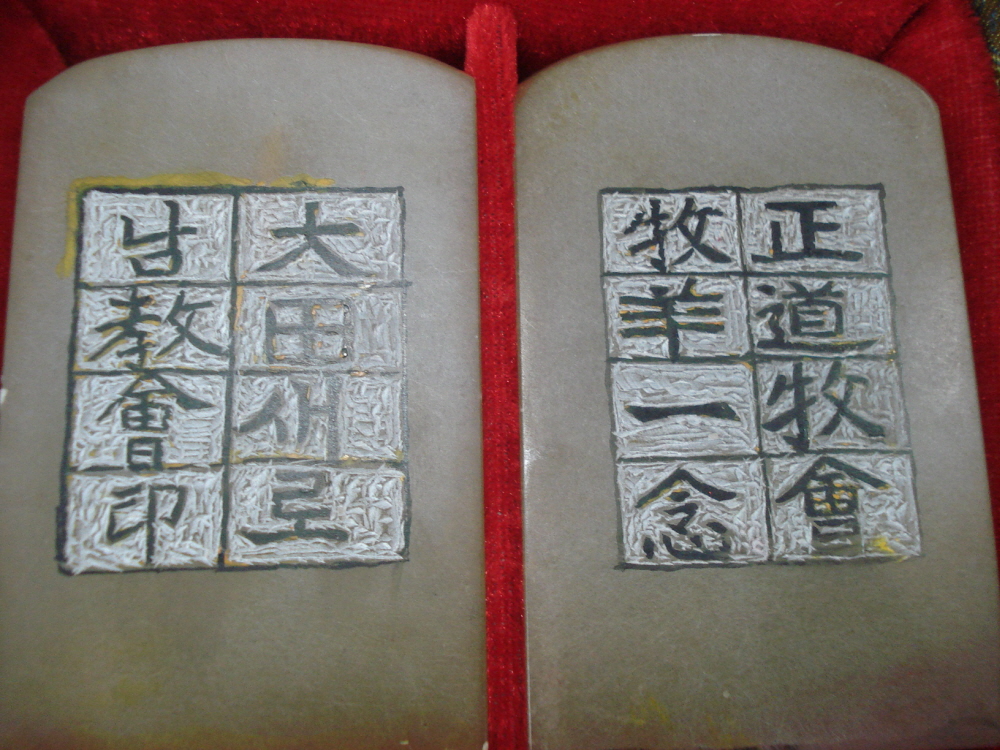 大田새로
남教會印
正道牧會
牧羊一念